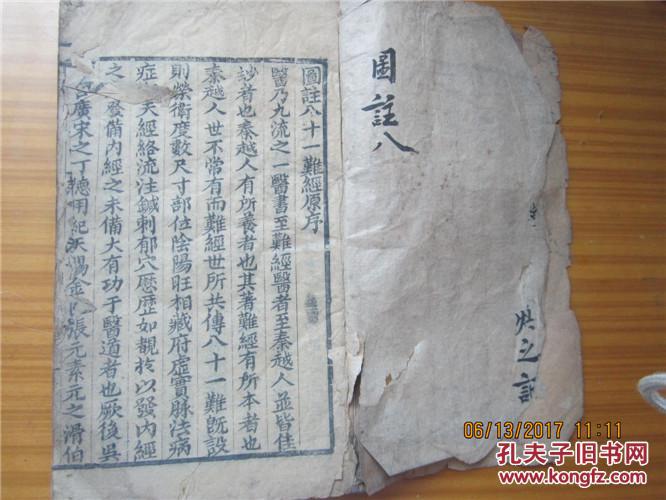 圖註八
圖註八十一難經原序
醫乃九流之一醫書至難經醫者至秦越人並皆佳
玅者也秦越人有所養者也其著難經有所本者也
秦越人世不常有而難經世所共傳八十一難既設
則榮衛度數尺寸部位陰陽旺相藏府虛實脉法病
症 天經絡流注鍼刺郁穴歷歷如觀於以發内經
之 發備内經之未備大有功于醫道者也厥後吳
廣宋之丁德用紀天錫金 張元素元之滑伯
06/13/2017 11:11
孔夫子旧书网
www.kongfz.com